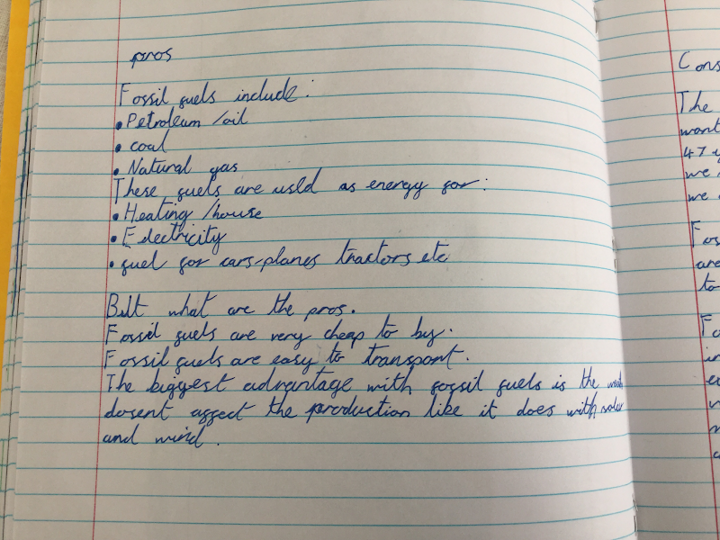 pros
Fossil fuels include:
• Petroleum /oil
• coal
• Natural gas
These fuels are used as energy for:
• Heating /house
• Electricity
• fuel for cars-planes tractors etc
But what are the pros.
Fossil fuels are very cheap to by.
Fossil fuels are easy to transport.
The biggest advantage with fossil fuels is the
dosent affect the production like it does with solar
and wind.
Cons
The
want
47
we
we
Fos
are
to